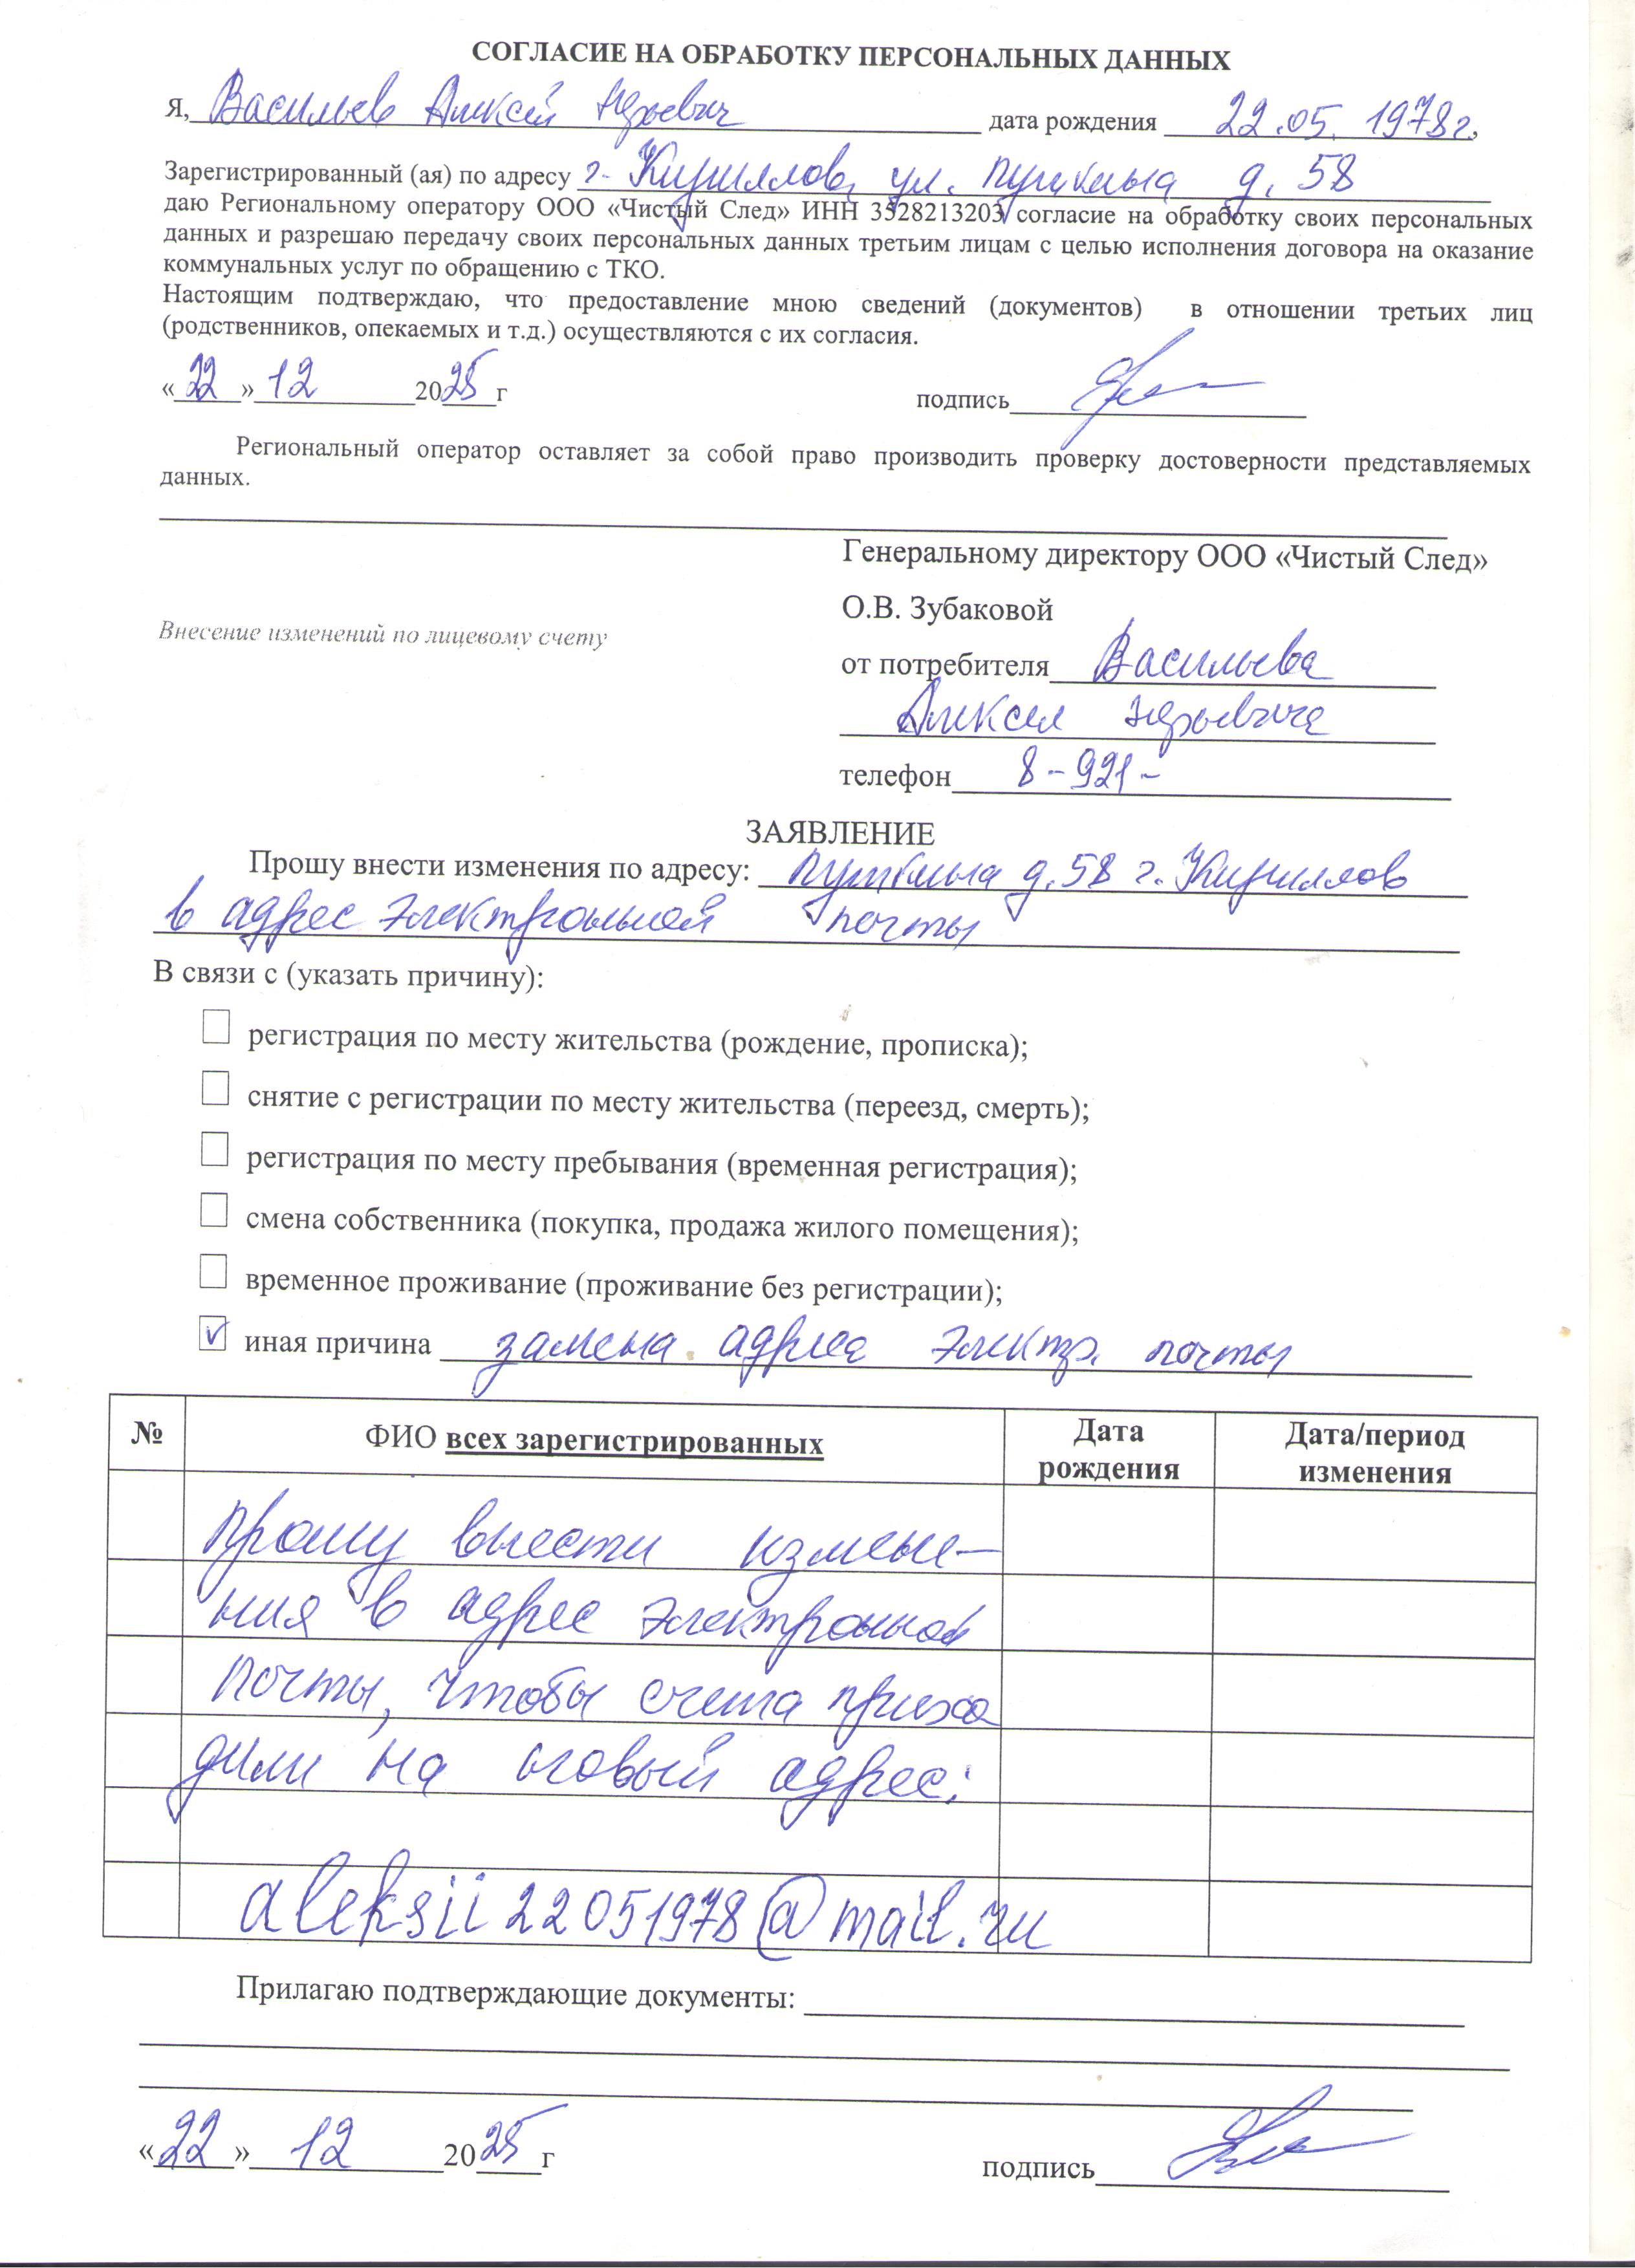 СОГЛАСИЕ НА ОБРАБОТКУ ПЕРСОНАЛЬНЫХ ДАННЫХ
Я, Васильев Алексей Юрьевич дата рождения 22.05.1978г.,
Зарегистрированный (ая) по адресу г. Кириллов, ул. Пушкина д. 58
даю Региональному оператору ООО «Чистый След» ИНН 3528213203 согласие на обработку своих персональных
данных и разрешаю передачу своих персональных данных третьим лицам с целью исполнения договора на оказание
коммунальных услуг по обращению с ТКО.
Настоящим подтверждаю, что предоставление мною сведений (документов) в отношении третьих лиц
(родственников, опекаемых и т.д.) осуществляются с их согласия.
«22» 12 2025 г подпись
Региональный оператор оставляет за собой право производить проверку достоверности представляемых
данных.
Генеральному директору ООО «Чистый След»
О.В. Зубаковой
Внесение изменений по лицевому счету
от потребителя Васильева
Алексея Юрьевича
телефон 8-921-
ЗАЯВЛЕНИЕ
Прошу внести изменения по адресу: Пушкина д. 58 г. Кириллов
в адрес электронной почты
В связи с (указать причину):
регистрация по месту жительства (рождение, прописка);
снятие с регистрации по месту жительства (переезд, смерть);
регистрация по месту пребывания (временная регистрация);
смена собственника (покупка, продажа жилого помещения);
временное проживание (проживание без регистрации);
иная причина замена адреса электр. почты
№ ФИО всех зарегистрированных Дата рождения Дата/период изменения
Прошу внести измене-
ния в адрес электронной
почты, чтобы счета прихо
дили на новый адрес:
aleksii22051978@mail.ru
Прилагаю подтверждающие документы:
«22» 12 2025 г подпись